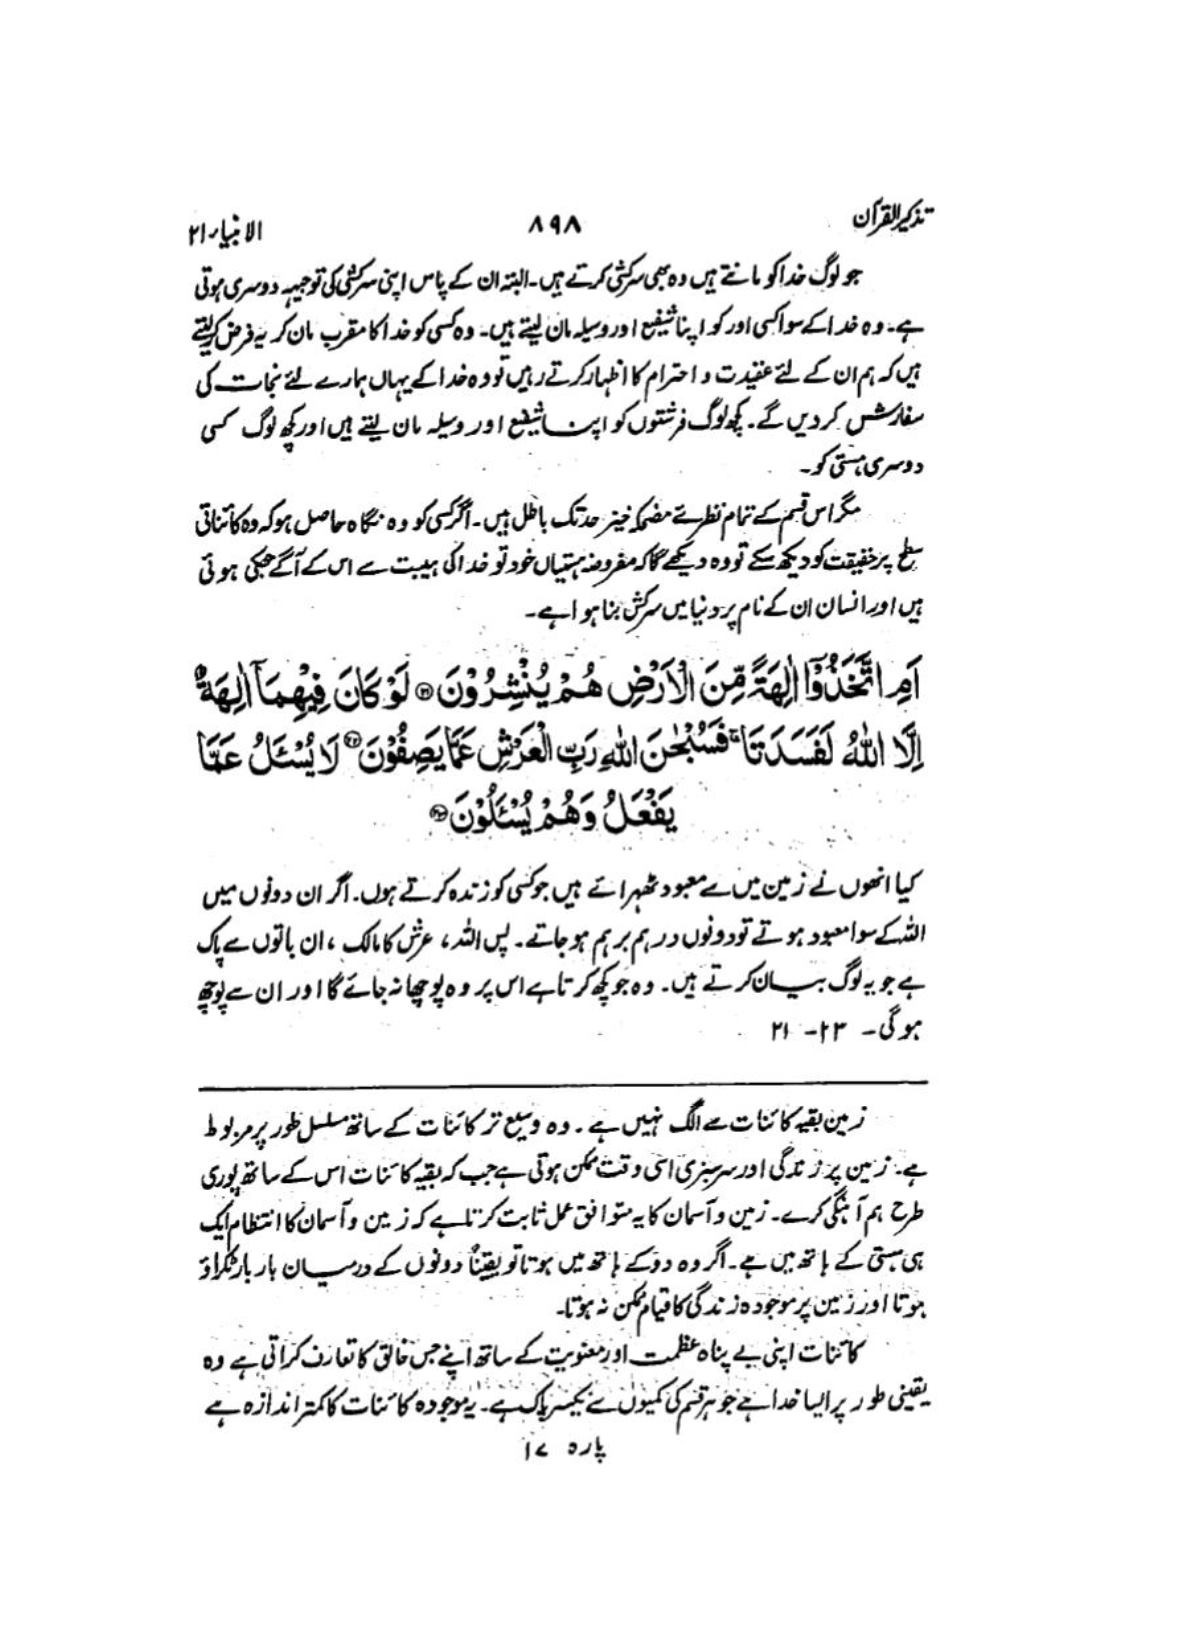 تذکیر القرآن ۸۹۸ الانبیاء ۲۱
جو لوگ خدا کو مانتے ہیں وہ بھی سرکشی کرتے ہیں۔ البتہ ان کے پاس اپنی سرکشی کی توجیہہ دوسری ہوتی
ہے۔ وہ خدا کے سوا کسی اور کو اپنا شفیع اور وسیلہ مان لیتے ہیں۔ وہ کسی کو خدا کا مقرب مان کر یہ فرض کر لیتے
ہیں کہ ہم ان کے لئے عقیدت و احترام کا اظہار کرتے رہیں تو وہ خدا کے یہاں ہمارے لئے نجات کی
سفارش کر دیں گے۔ کچھ لوگ فرشتوں کو اپنا شفیع اور وسیلہ مان لیتے ہیں اور کچھ لوگ کسی
دوسری ہستی کو۔
مگر اس قسم کے تمام نظرئے مضحکہ خیز حد تک باطل ہیں۔ اگر کسی کو وہ نگاہ حاصل ہو کہ وہ کائناتی
سطح پر حقیقت کو دیکھ سکے تو وہ دیکھے گا کہ مفروضہ ہستیاں خود تو خدا کی ہیبت سے اس کے آگے جھکی ہوئی
ہیں اور انسان ان کے نام پر دنیا میں سرکش بنا ہوا ہے۔
اَمِ اتَّخَذُوْۤا اٰلِهَةً مِّنَ الْاَرْضِ هُمْ يُنْشِرُوْنَ ۲۱ لَوْ كَانَ فِيْهِمَاۤ اٰلِهَةٌ
اِلَّا اللّٰهُ لَفَسَدَتَا ۚ فَسُبْحٰنَ اللّٰهِ رَبِّ الْعَرْشِ عَمَّا يَصِفُوْنَ ۲۲ لَا يُسْـَٔلُ عَمَّا
يَفْعَلُ وَهُمْ يُسْـَٔلُوْنَ ۲۳
کیا انھوں نے زمین میں سے معبود ٹھہرائے ہیں جو کسی کو زندہ کرتے ہوں۔ اگر ان دونوں میں
اللہ کے سوا معبود ہوتے تو دونوں درہم برہم ہو جاتے۔ پس اللہ، عرش کا مالک، ان باتوں سے پاک
ہے جو یہ لوگ بیان کرتے ہیں۔ وہ جو کچھ کرتا ہے اس پر وہ پوچھا نہ جائے گا اور ان سے پوچھ
ہوگی۔ ۲۳- ۲۱
زمین بقیہ کائنات سے الگ نہیں ہے۔ وہ وسیع تر کائنات کے ساتھ مسلسل طور پر مربوط
ہے۔ زمین پر زندگی اور سرسبزی اسی وقت ممکن ہوتی ہے جب کہ بقیہ کائنات اس کے ساتھ پوری
طرح ہم آہنگی کرے۔ زمین و آسمان کا یہ متوافق عمل ثابت کرتا ہے کہ زمین و آسمان کا انتظام ایک
ہی ہستی کے ہاتھ میں ہے۔ اگر وہ دو کے ہاتھ میں ہوتا تو یقیناً دونوں کے درمیان بار بار ٹکراؤ
ہوتا اور زمین پر موجودہ زندگی کا قیام ممکن نہ ہوتا۔
کائنات اپنی بے پناہ عظمت اور معنویت کے ساتھ اپنے جس خالق کا تعارف کراتی ہے وہ
یقینی طور پر ایسا خدا ہے جو ہر قسم کی کمیوں سے یکسر پاک ہے۔ یہ موجودہ کائنات کا کمتر اندازہ ہے
پارہ ۱۷